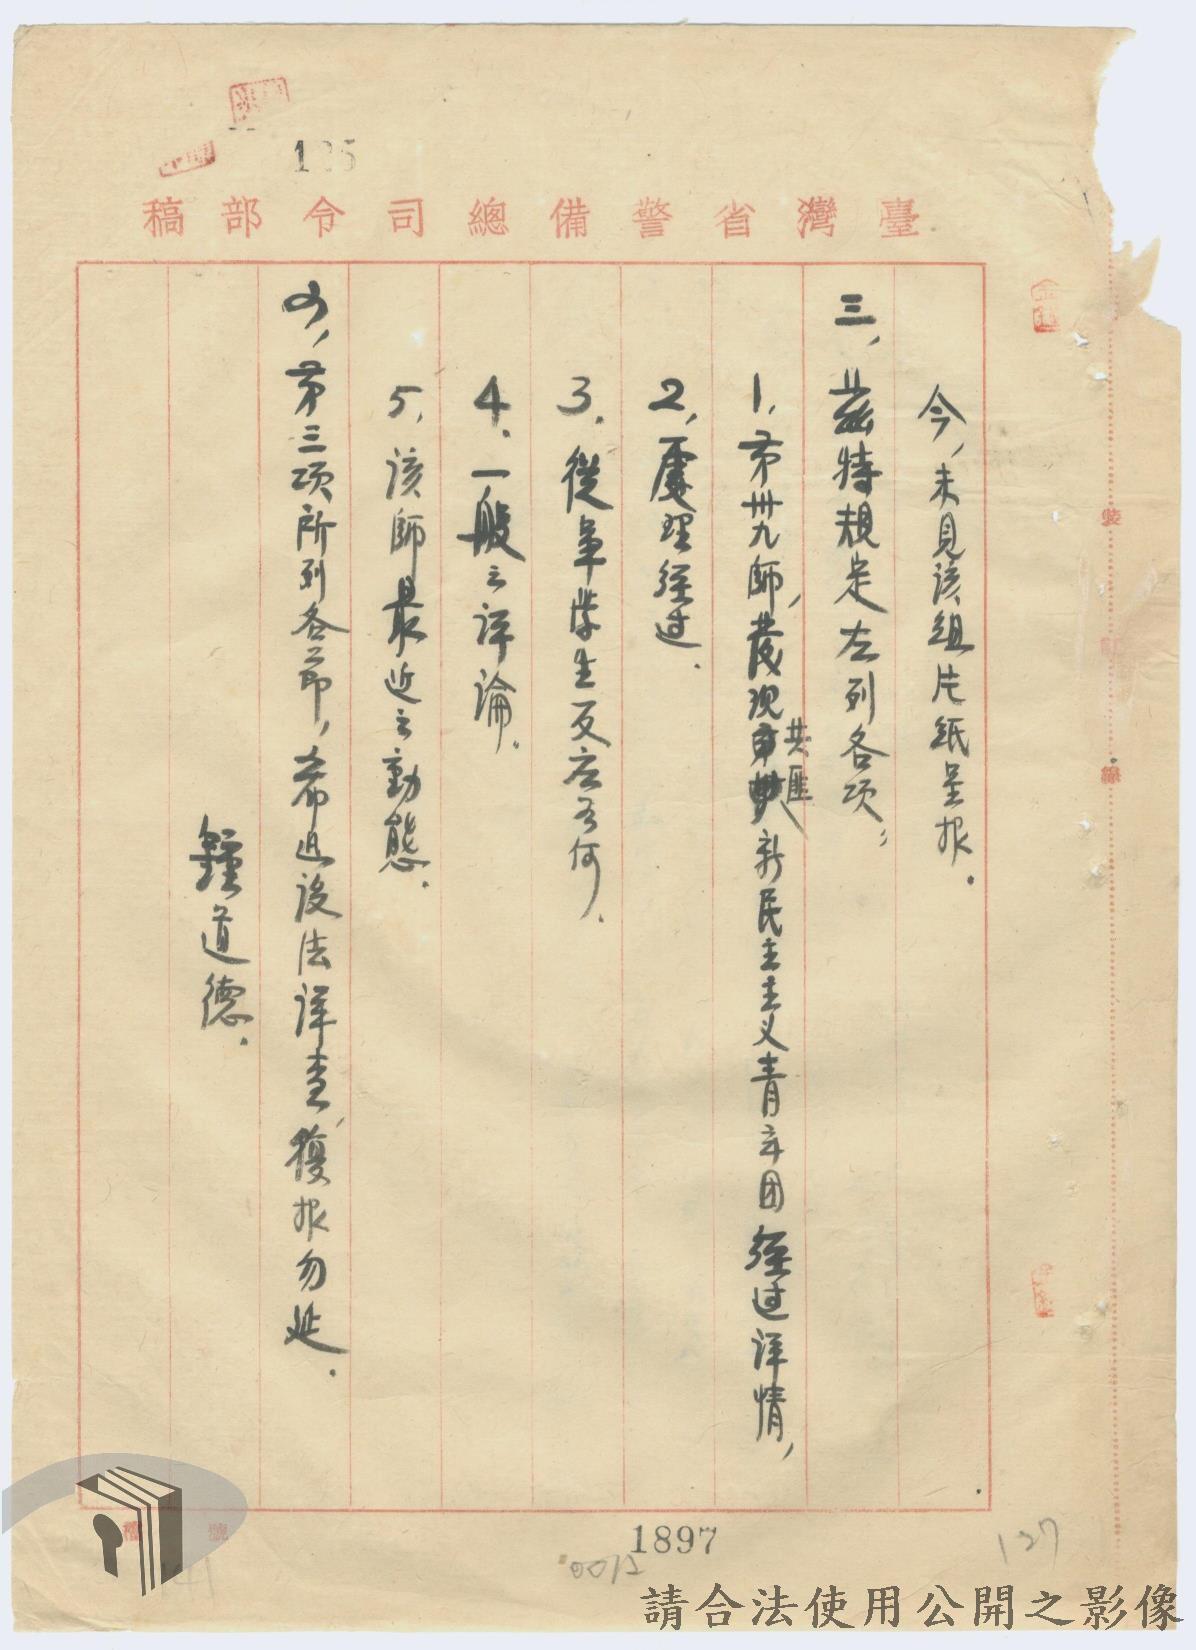 125
臺灣省警備總司令部稿
今,未見該組片紙呈报.
三,茲特規定左列各项;
1,苐卅九師,发现共匪新民主主义青年团經过详情,
2,處理經过.
3.從軍学生反应为何.
4.一般之评論.
5,该師最近之動態.
四,苐三项所列各節,希迅设法详查,獲报勿延.
鍾道德.
裝
訂
線
檔
號
1897
0012
127
請合法使用公開之影像